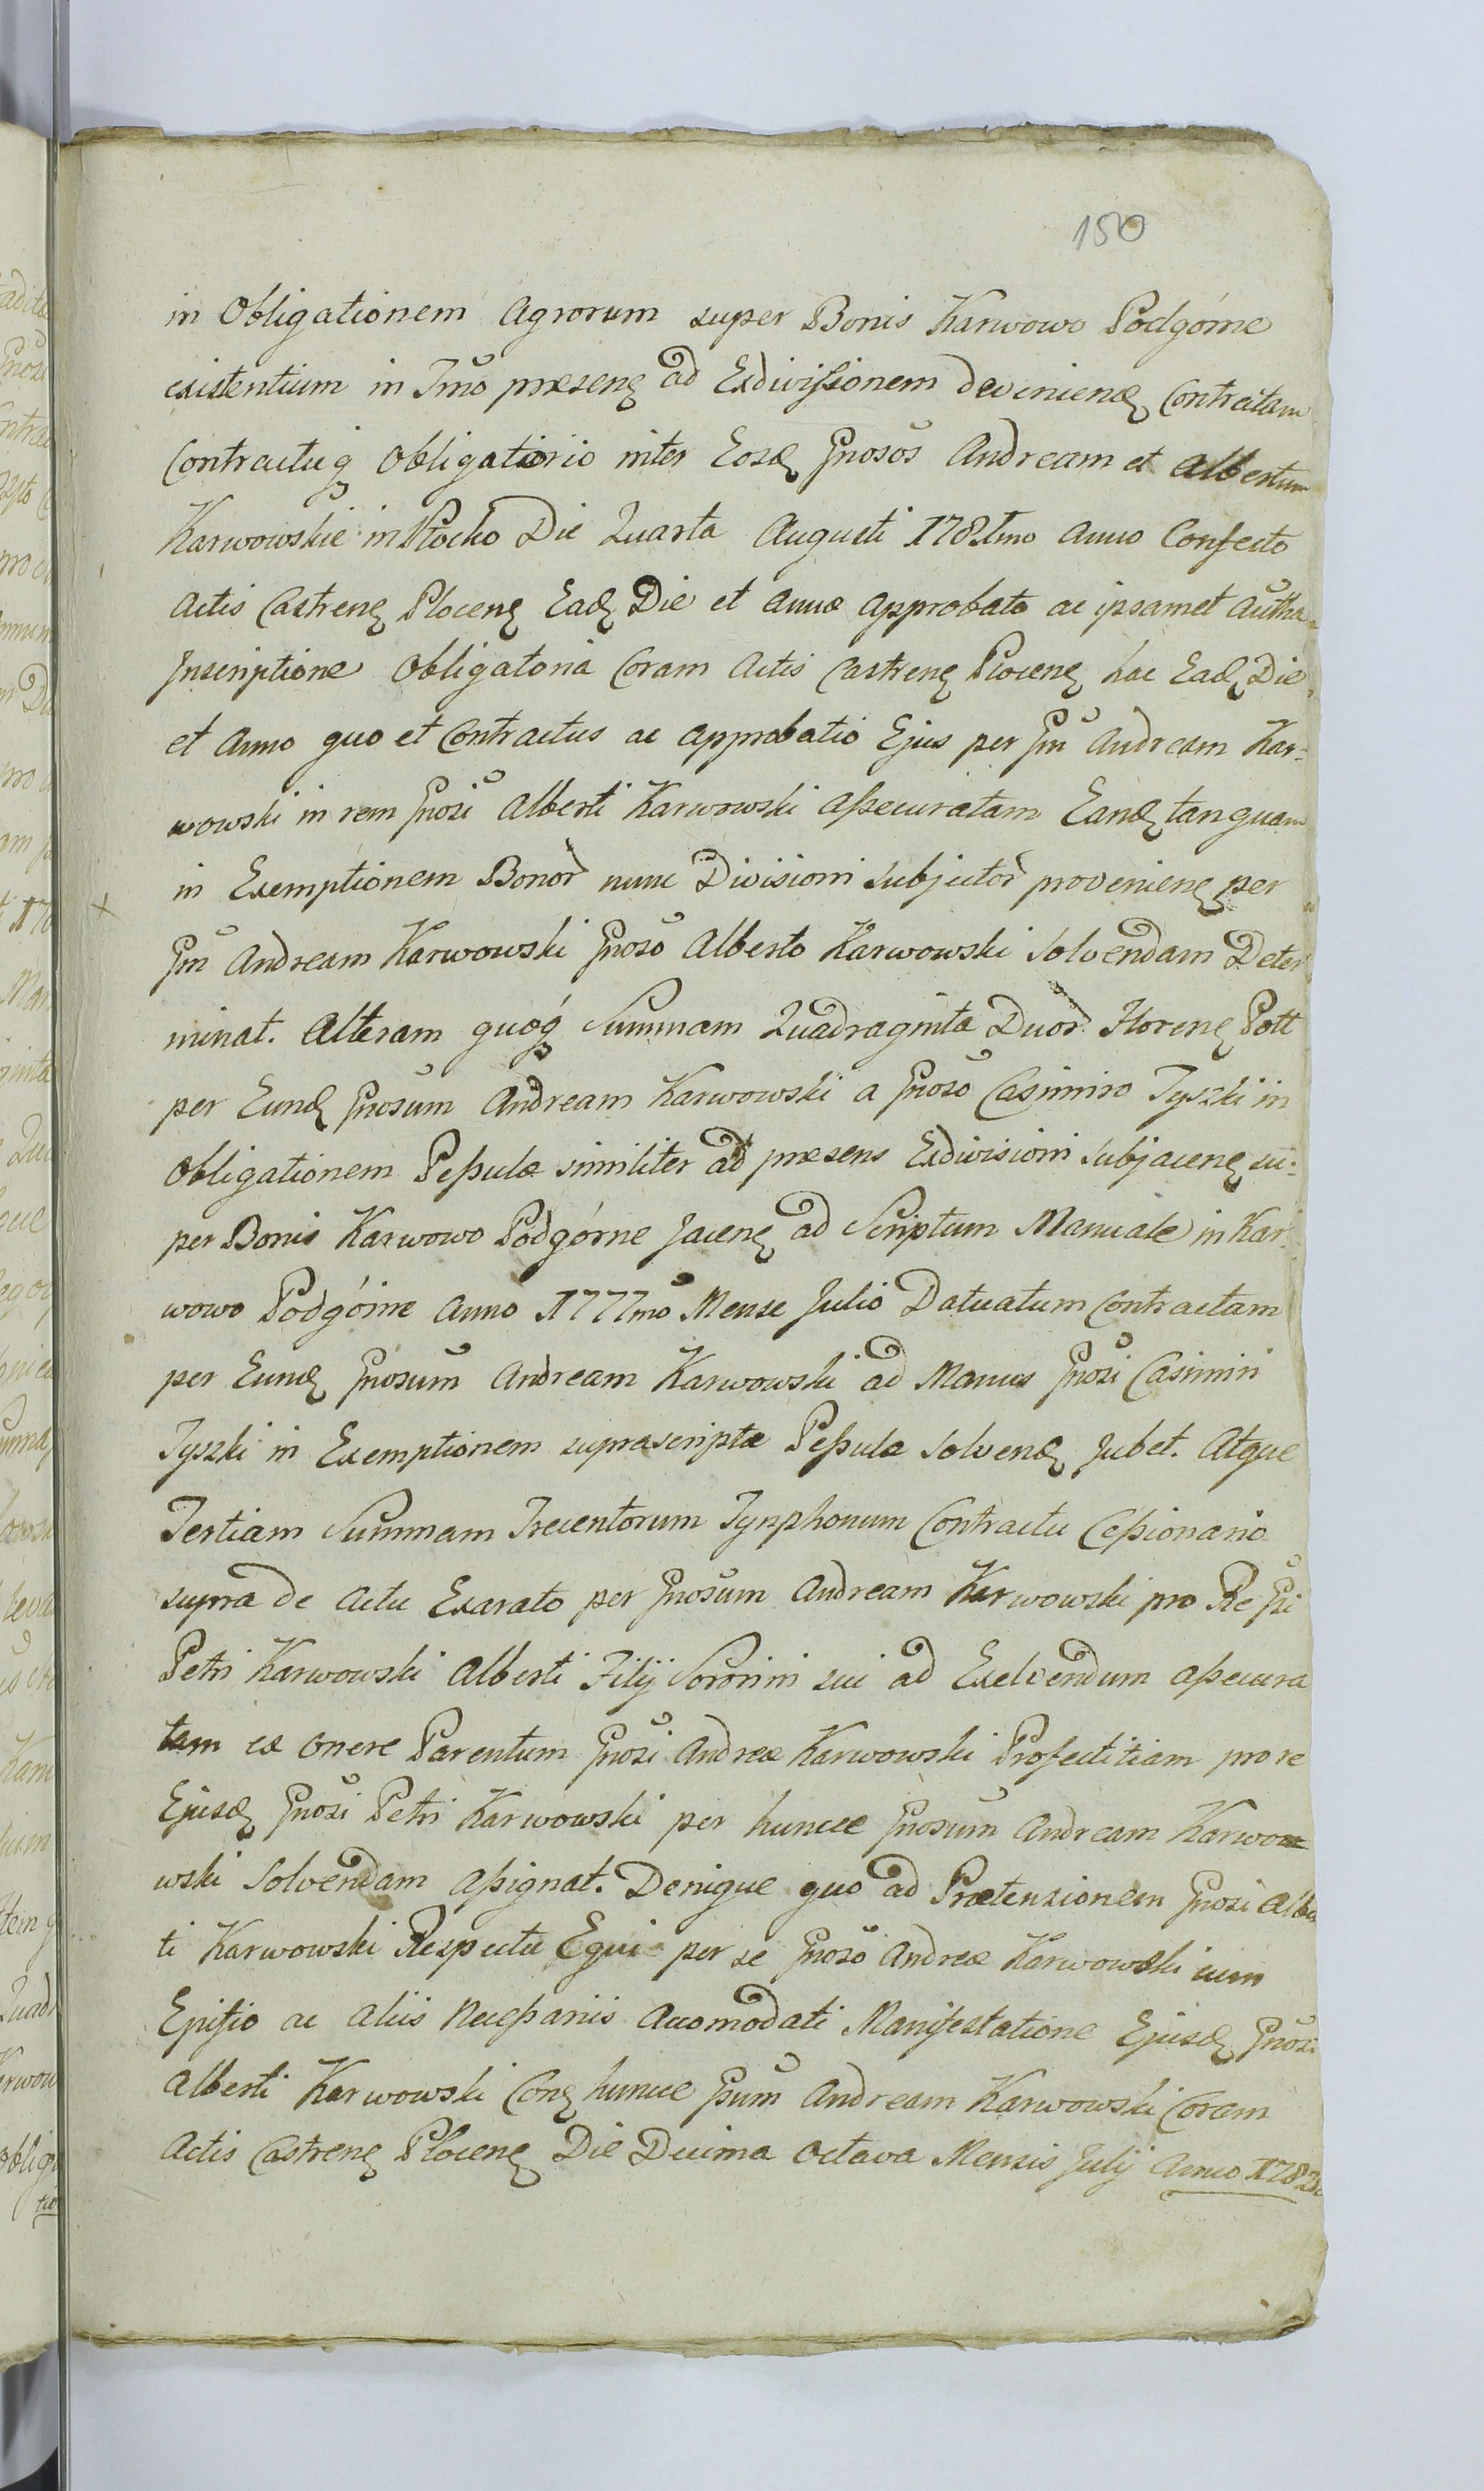 150
in Obligationem Agrorum super Bonis Karwowo Podgórne
existentium in Tmo præsenę ad Exdivissionem devenienę Contractam
Contractuq Obligatorio inter Eosdę Gnosos Andream et Albertum
Karwowskie in Płocko Die Quarta Augusti 1781mo Anno Confecto
Actis Castrenę Plocenę Eadę Die et Anno Approbato ac ipsamet Autha
Inscriptione Obligatoria Coram Actis Castrenę Plocenę hac Eadę Die
et Anno quo et Contractus ac Approbatio Ejus per Gm Andream Kar-
wowski in rem Gnosi Alberti Karwowski Assecuratam Eandę tanquam
in Exemptionem Bonor nunc Divisioni Subjector provenienę per
Gm Andream Karwowski Gnoso Alberto Karwowski Solvendam Deter
minat. Alteram quoq Summam Quadraginta Duor Florenę Poll
per Eundę Gnosum Andream Karwowski a Gnoso Casimiro Tyszki in
Obligationem Pessulæ similiter ad præsens Exdivisioni Subjacenę su-
per Bonis Karwowo Podgórne Jacenę ad Scriptum Manuale in Kar
wowo Podgórne Anno 1777mo Mense Julio Datuatum Contractam
per Eundę Gnosum Andream Karwowski ad Manus Gnosi Casimiri
Tyszki in Exemptionem suprascriptæ Pessulæ Solvendę Jubet. Atque
Tertiam Summam Trecentorum Tynphonum Contractu Cessionario
supra de Actu Exarato per Gnosum Andream Karwowski pro Re Gsi
Petri Karwowski Alberti Filij Sororini sui ad Exelvendum Assecura
tam ex Onere Parentum Gnosi Andreæ Karwowski Profectitiam pro re
Ejusdę Gnosi Petri Karwowski per huncce Gnosum Andream Karwow
wski Solvendam Assignat. Denique quo ad Prætensionem Gnosi Alber
ti Karwowski Respectu Equi per se Gnoso Andreæ Karwowski cum
Epifio ac Aliis Necessariis Acomodati Manifestatione Ejusdę Gnosi
Alberti Karwowski Conę huncce Gsum Andream Karwowski Coram
Actis Castrenę Plocenę Die Decima Octava Mensis Julij Anno 1782do